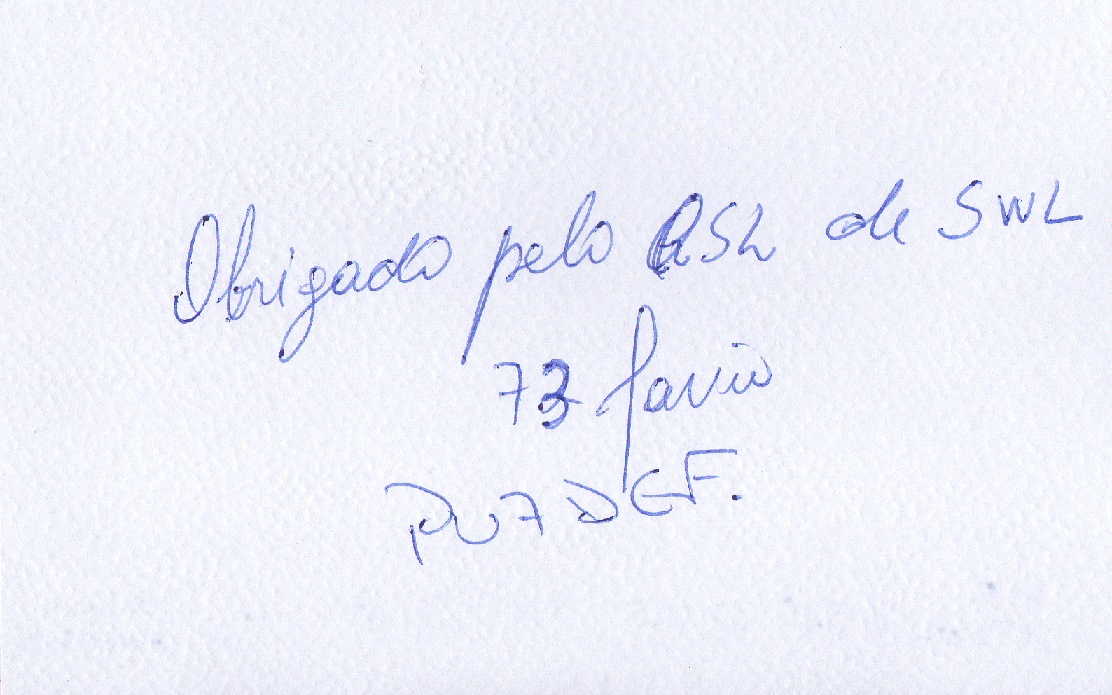 Obrigado pelo QSL de SWL
73 Favio
PU7DEF.